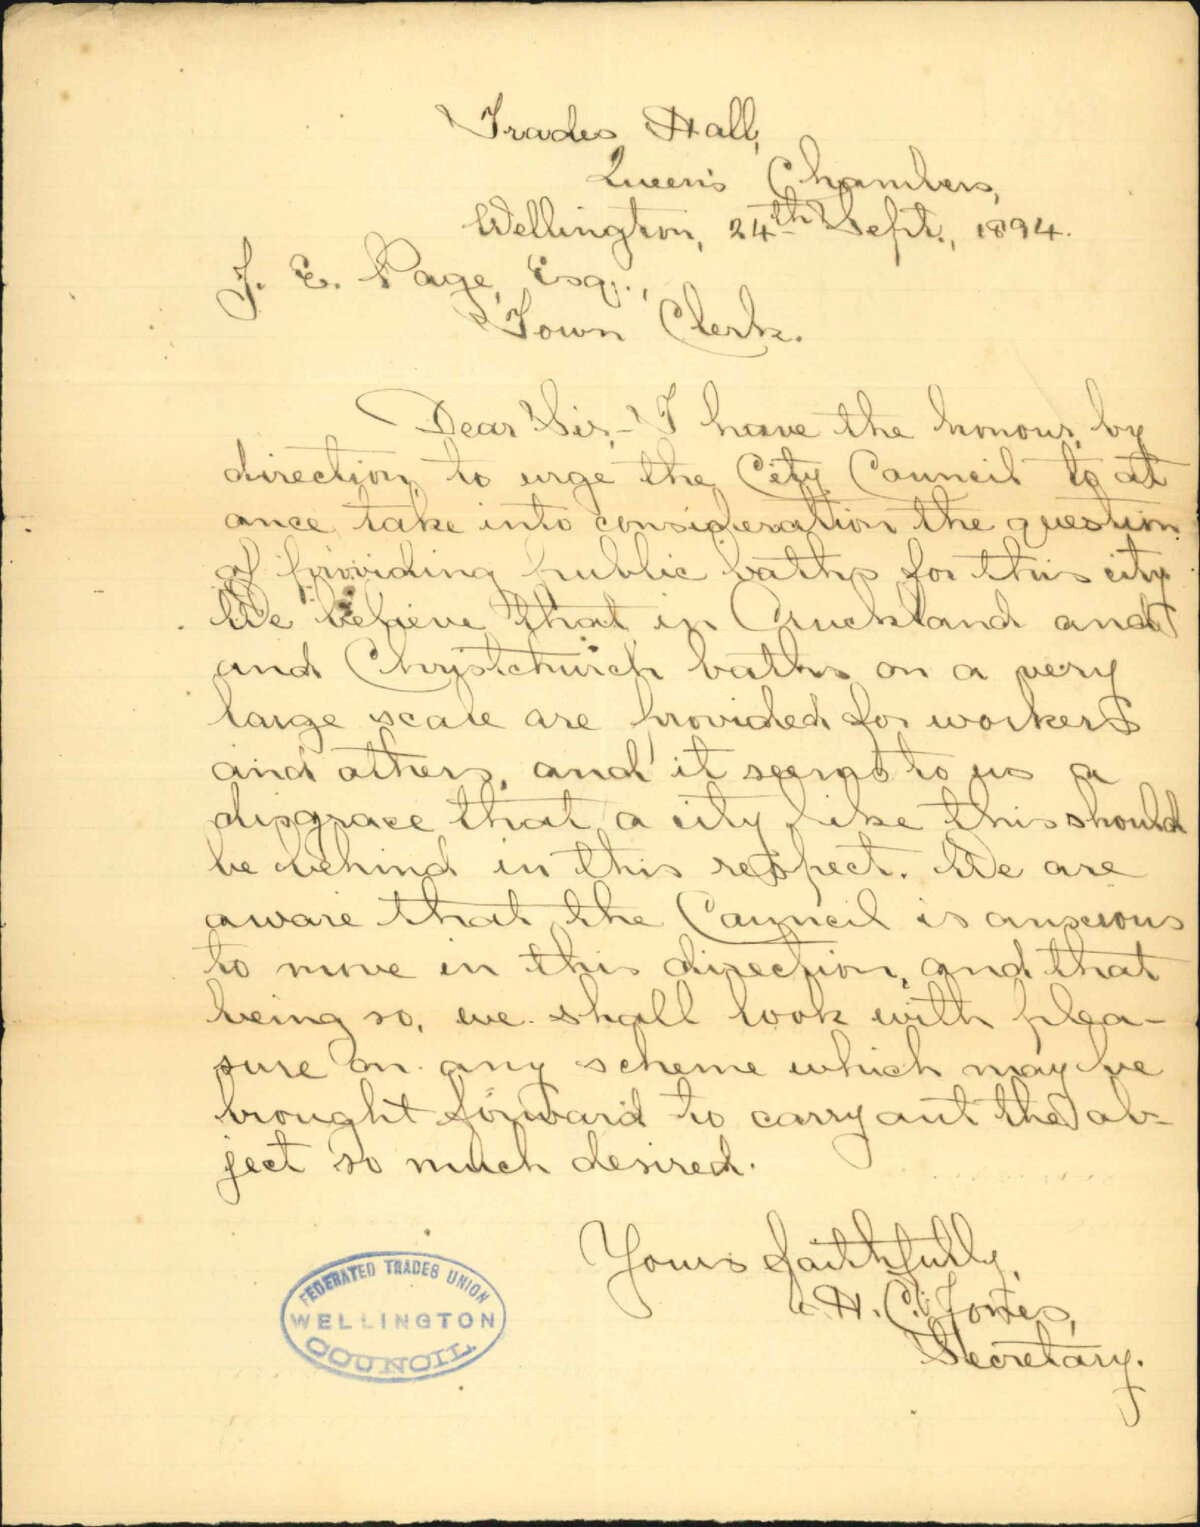 Trades Hall,
Queen's Chambers,
Wellington, 24th Sept., 1894.
J. E. Page, Esq.,
Town Clerk.
Dear Sir,- I have the honour, by
direction, to urge the City Council to at
once take into consideration the question
of providing public baths for this city.
We believe that in Auckland and
and Christchurch baths on a very
large scale are provided for workers
and others, and it seems to us a
disgrace that a city like this should
be behind in this respect. We are
aware that the Council is anxious
to move in this direction, and that
being so, we shall look with plea-
sure on any scheme which may be
brought forward to carry out the ob-
ject so much desired.
Yours faithfully,
H. C. Jones,
Secretary.
FEDERATED TRADES UNION
WELLINGTON
COUNCIL